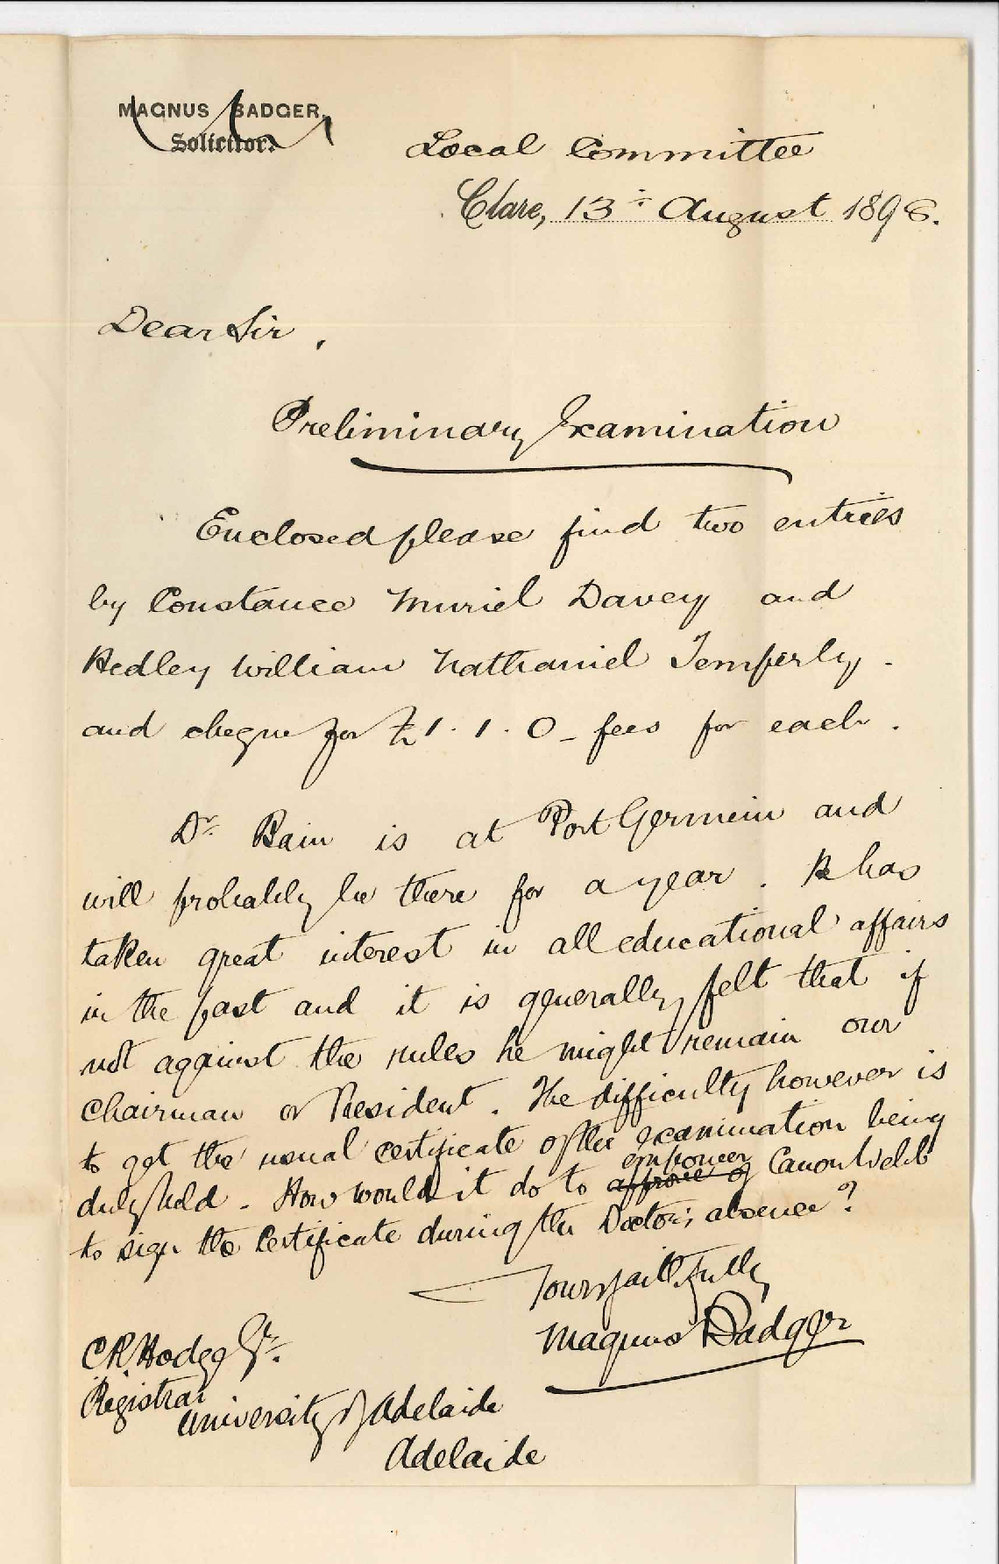 MAGNUS BADGER,
Solicitor.
Local Committee
Clare, 13th August 1896.
Dear Sir,
Preliminary Examination
Enclosed please find two entries
by Constance Muriel Davey and
Hedley William Nathaniel Temperly.
and cheque for £1.1.0 - fees for each.
Dr. Bain is at Port Germein and
will probably be there for a year. He has
taken great interest in all educational affairs
in the past and it is generally felt that if
not against the rules he might remain our
Chairman or President. The difficulty however is
to get the usual certificate of the examination being
empower
duly held. How would it do to approve of Canon Webb
to sign the Certificate during the Doctor's absence?
Yours faithfully
Magnus Badger
C R Hodge Esqr.
Registrar
University of Adelaide
Adelaide